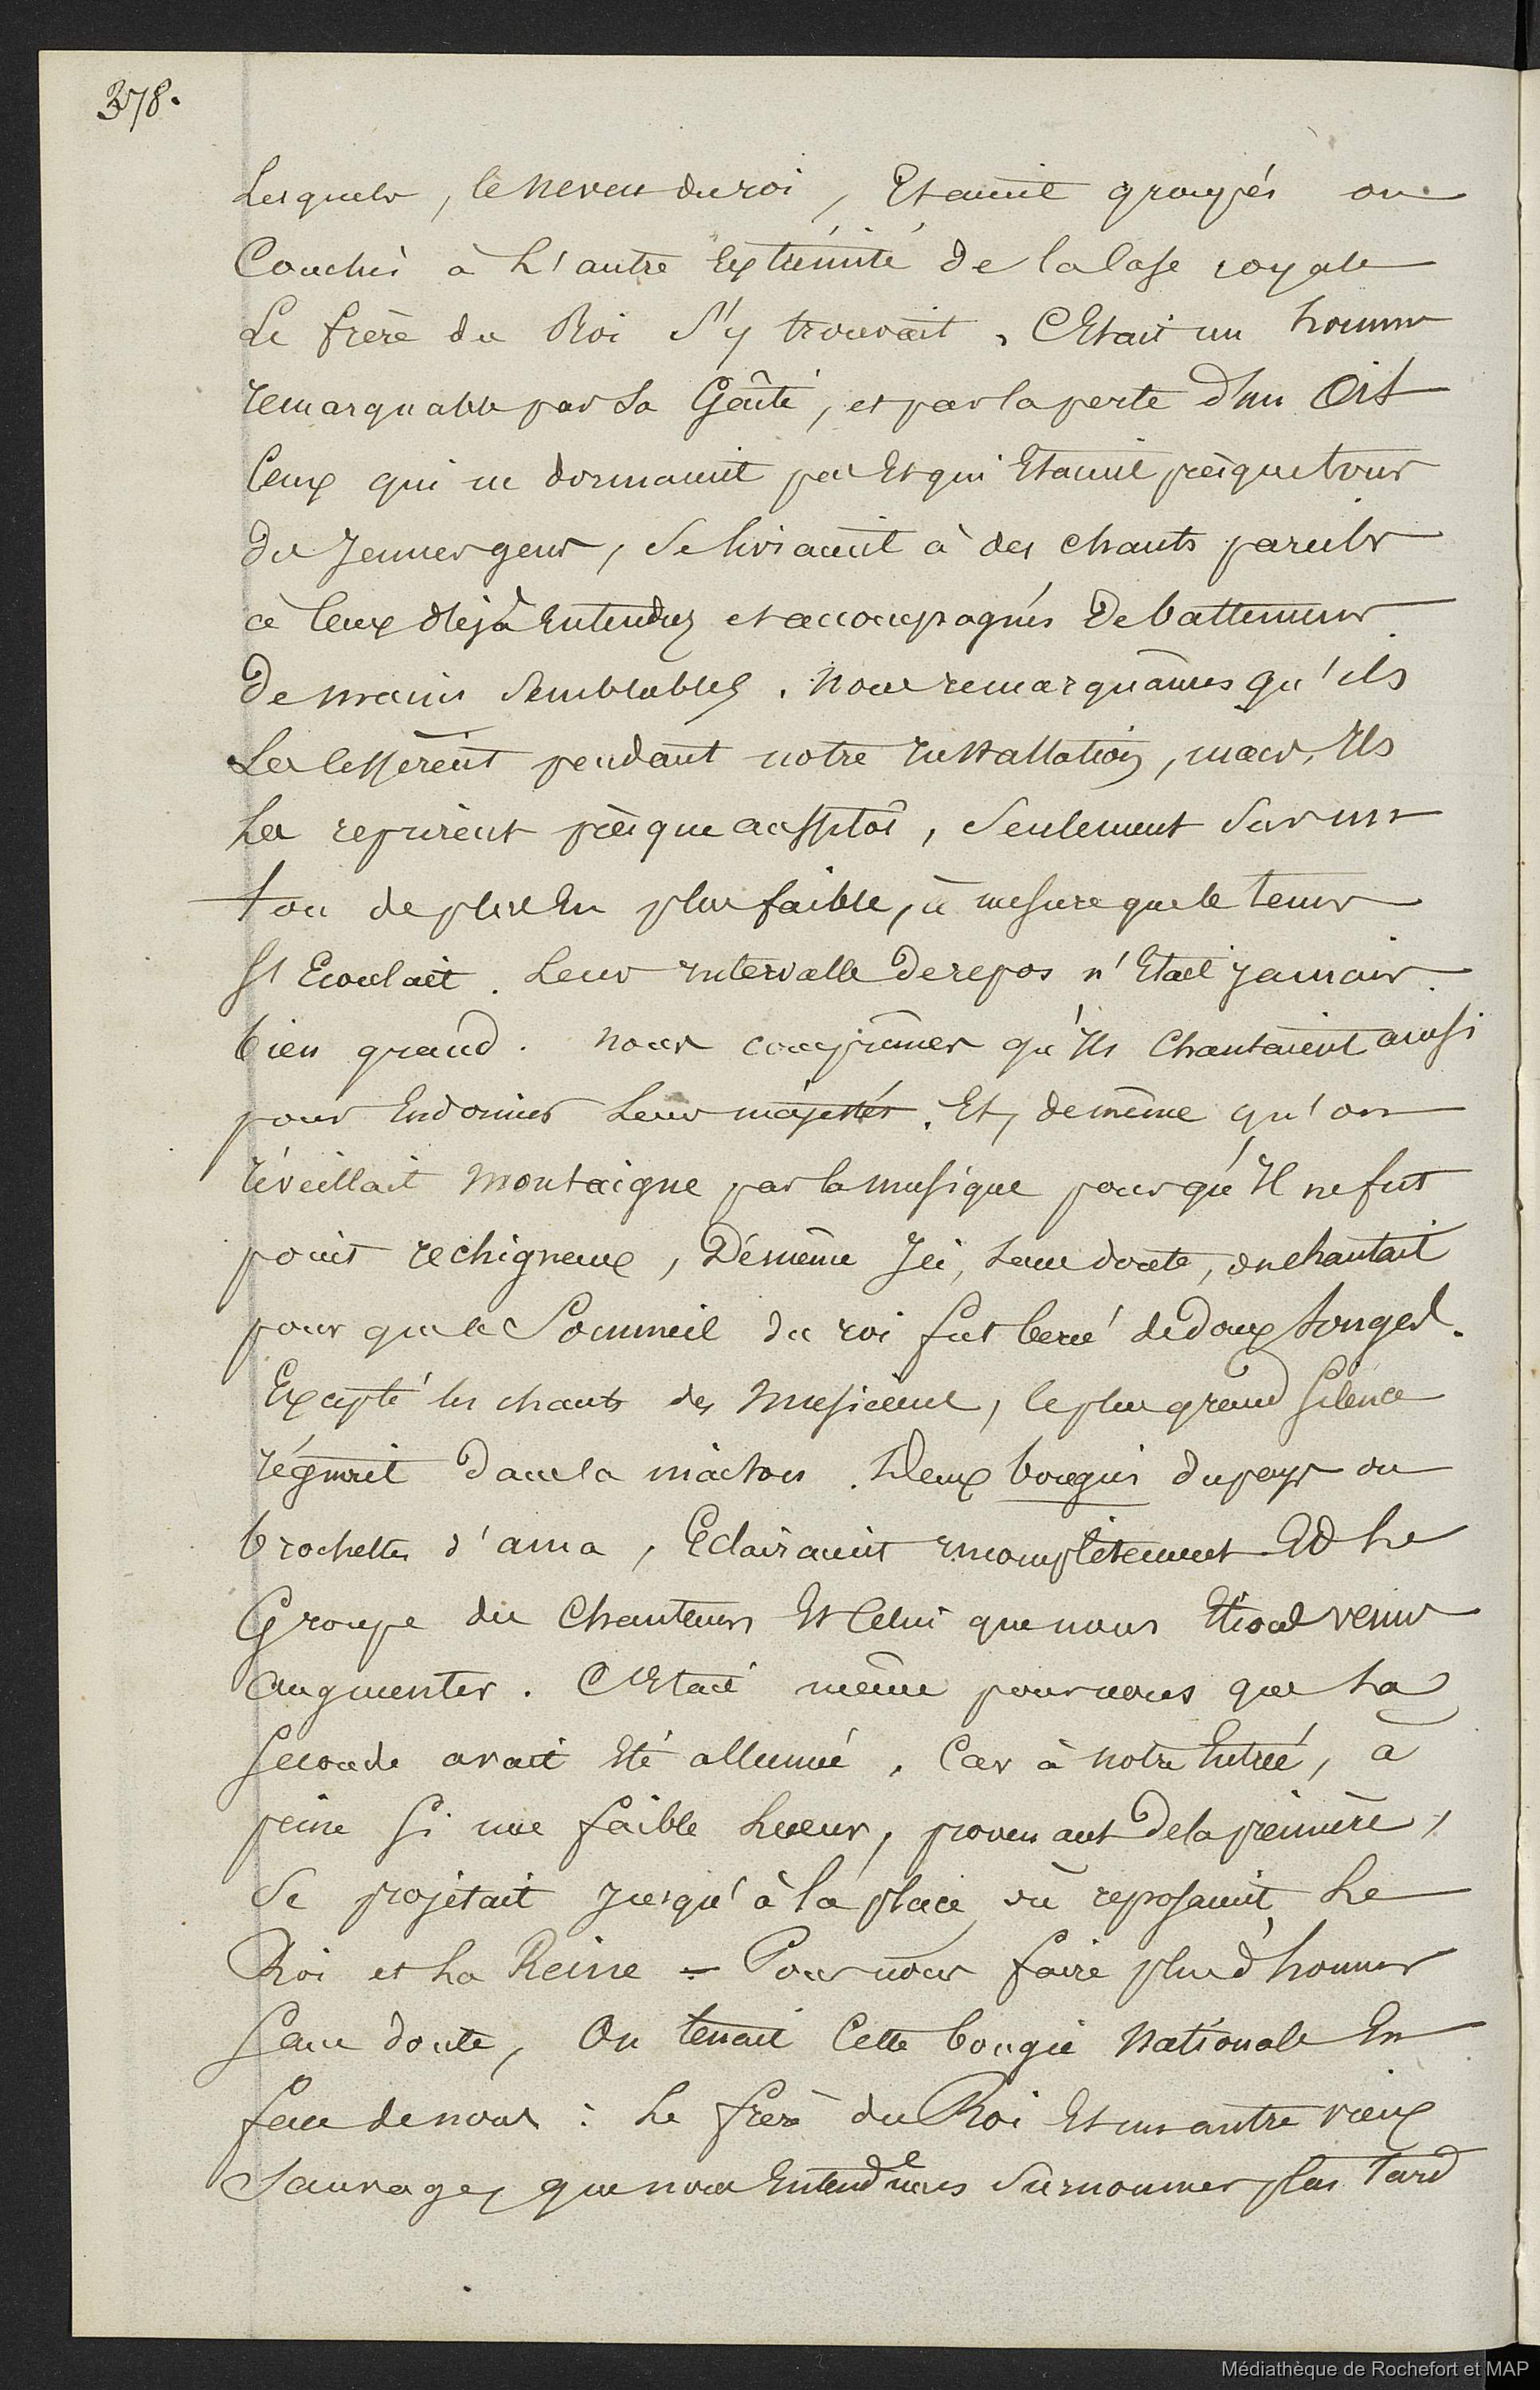 378.
Lesquels, le neveu du roi, Etaient groupés ou
Couchés à L'autre Extrémité de la Case royale
Le frère du Roi s'y trouvait. C'Etait un homme
remarquable par sa Gaîté, et par la perte d'un Œil
Ceux qui ne dormaient pas Et qui Etaient presque tous
des Jeunes gens, se livraient à des chants pareils
à Ceux déjà Entendus et accompagnés De battemens
De mains semblables. Nous remarquâmes qu'ils
Les Cessèrent pendant notre Installation, mais, Ils
Les reprirent presque aussitôt, Seulement sur un
ton de plus En plus faible, à mesure que le tems
S'Ecoulait. Leur Intervalle de repos n'Etait Jamais
bien grand. Nous comprîmes qu'Ils Chantaient ainsi
pour Endormir Leurs majestés. Et, de même qu'on
réveillait Montaigne par la musique pour qu'Il ne fut
point rechigneux, De même Ici, sans doute, on chantait
pour que le Sommeil du roi fut bercé de doux songes.
Excepté les chants des Musiciens, le plus grand Silence
régnait Dans la maison. Deux bougies du pays ou
brochettes d'ama, Eclairaient Incomplètement Et Le
Groupe des Chanteurs Et Celui que nous Etions venus
augmenter. C'Etait même pour nous que La
Seconde avait Eté allumée, Car à notre Entrée, à
peine Si une faible Lueur, provenant De la première,
Se projetait Jusqu'à la place où reposaient Le
Roi et La Reine = Pour nous faire plus d'honneur
Sans doute, On tenait Cette bougie Nationale En
face de nous : Le frère du Roi Et un autre vieux
Sauvage, que nous Entendîmes Surnommer plus Tard
Médiathèque de Rochefort et MAP